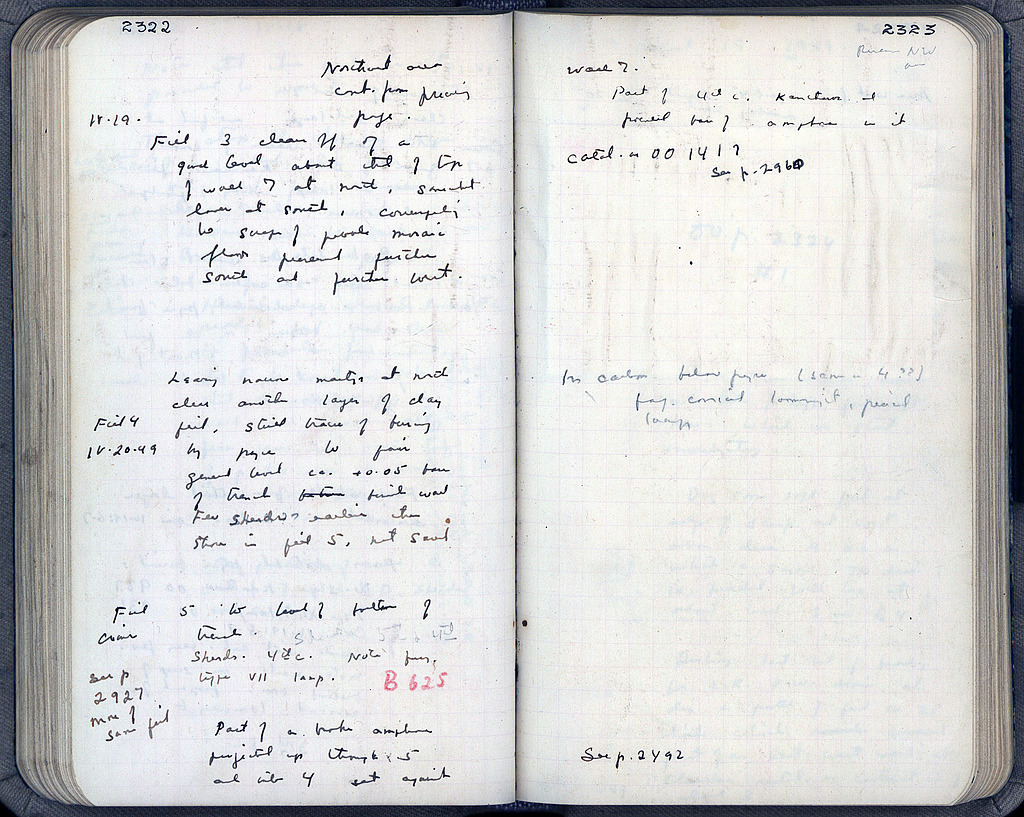 2322
Northwest area
cont. from previous
page.
IV.19.
Fill 3 clean off of a
good level about that of top
of wall 7 at north, somewhat
lower at south, corresponding
to scrap of pebble mosaic
floor preserved further
south and further west.
Leaving narrow at north
clear another layer of clay
Fill 4
fill, still traces of burning
IV.20.49
by pyre to fair
general level ca. +0.05 base
of trench wall
Few sherds earlier than
those in fill 5, not saved
Fill 5 to level of bottom of
trench. 5th - 4th
Sherds. 4th c. Note
type VII lamp. B 625
See p
2927
more of
same fill
Part of a broken amphora
projected up through 5
and into 4 set against
2323
NW
wall 7.
Part of 4th c. kantharos and
amphora in it
catal. as 00 1417
See p. 2960
carbon below pyre (same as 4 ??)
frag. conical loomweight, pieces of
lamps
See p. 2492